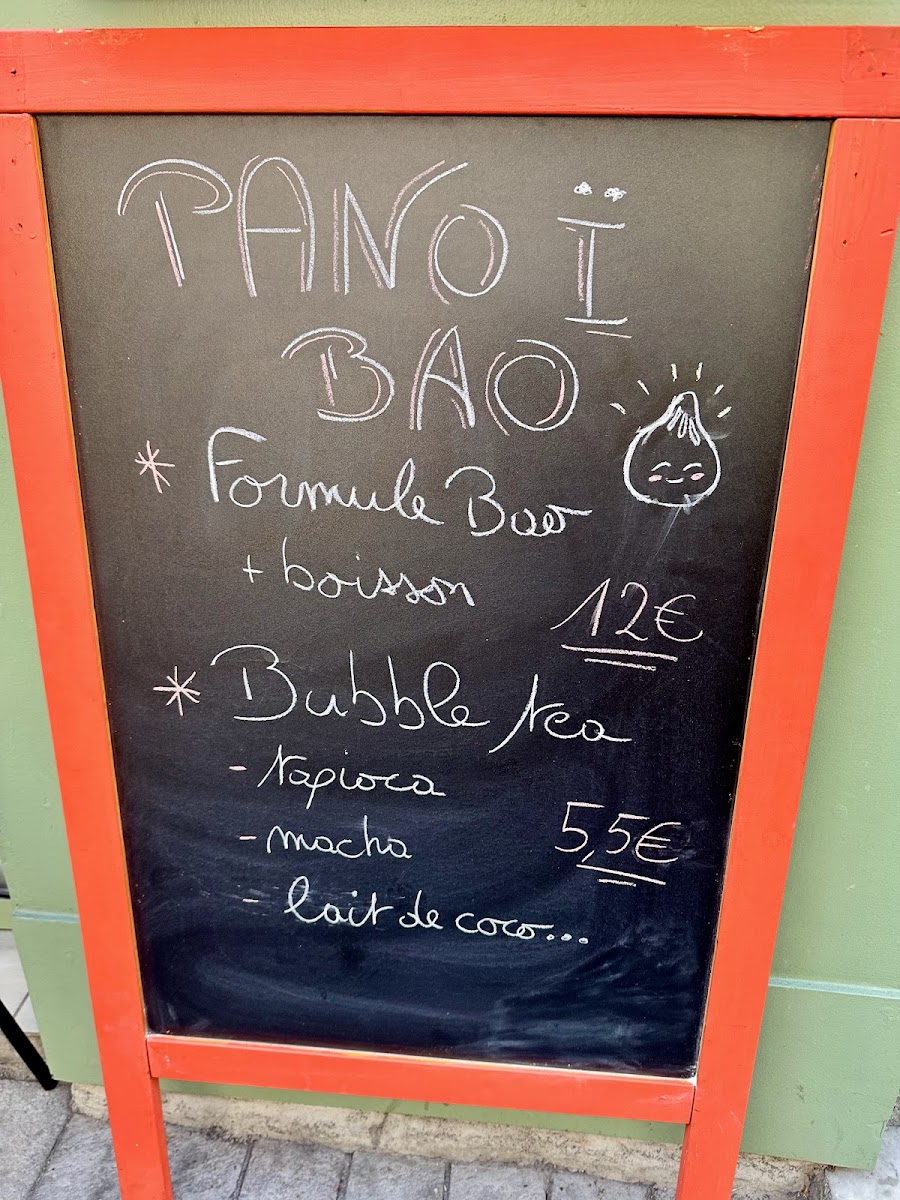 PANO Ï
BAO
* Formule Bao
+ boisson
12€
* Bubble tea
- tapioca
- macha
5,5€
- lait de coco...